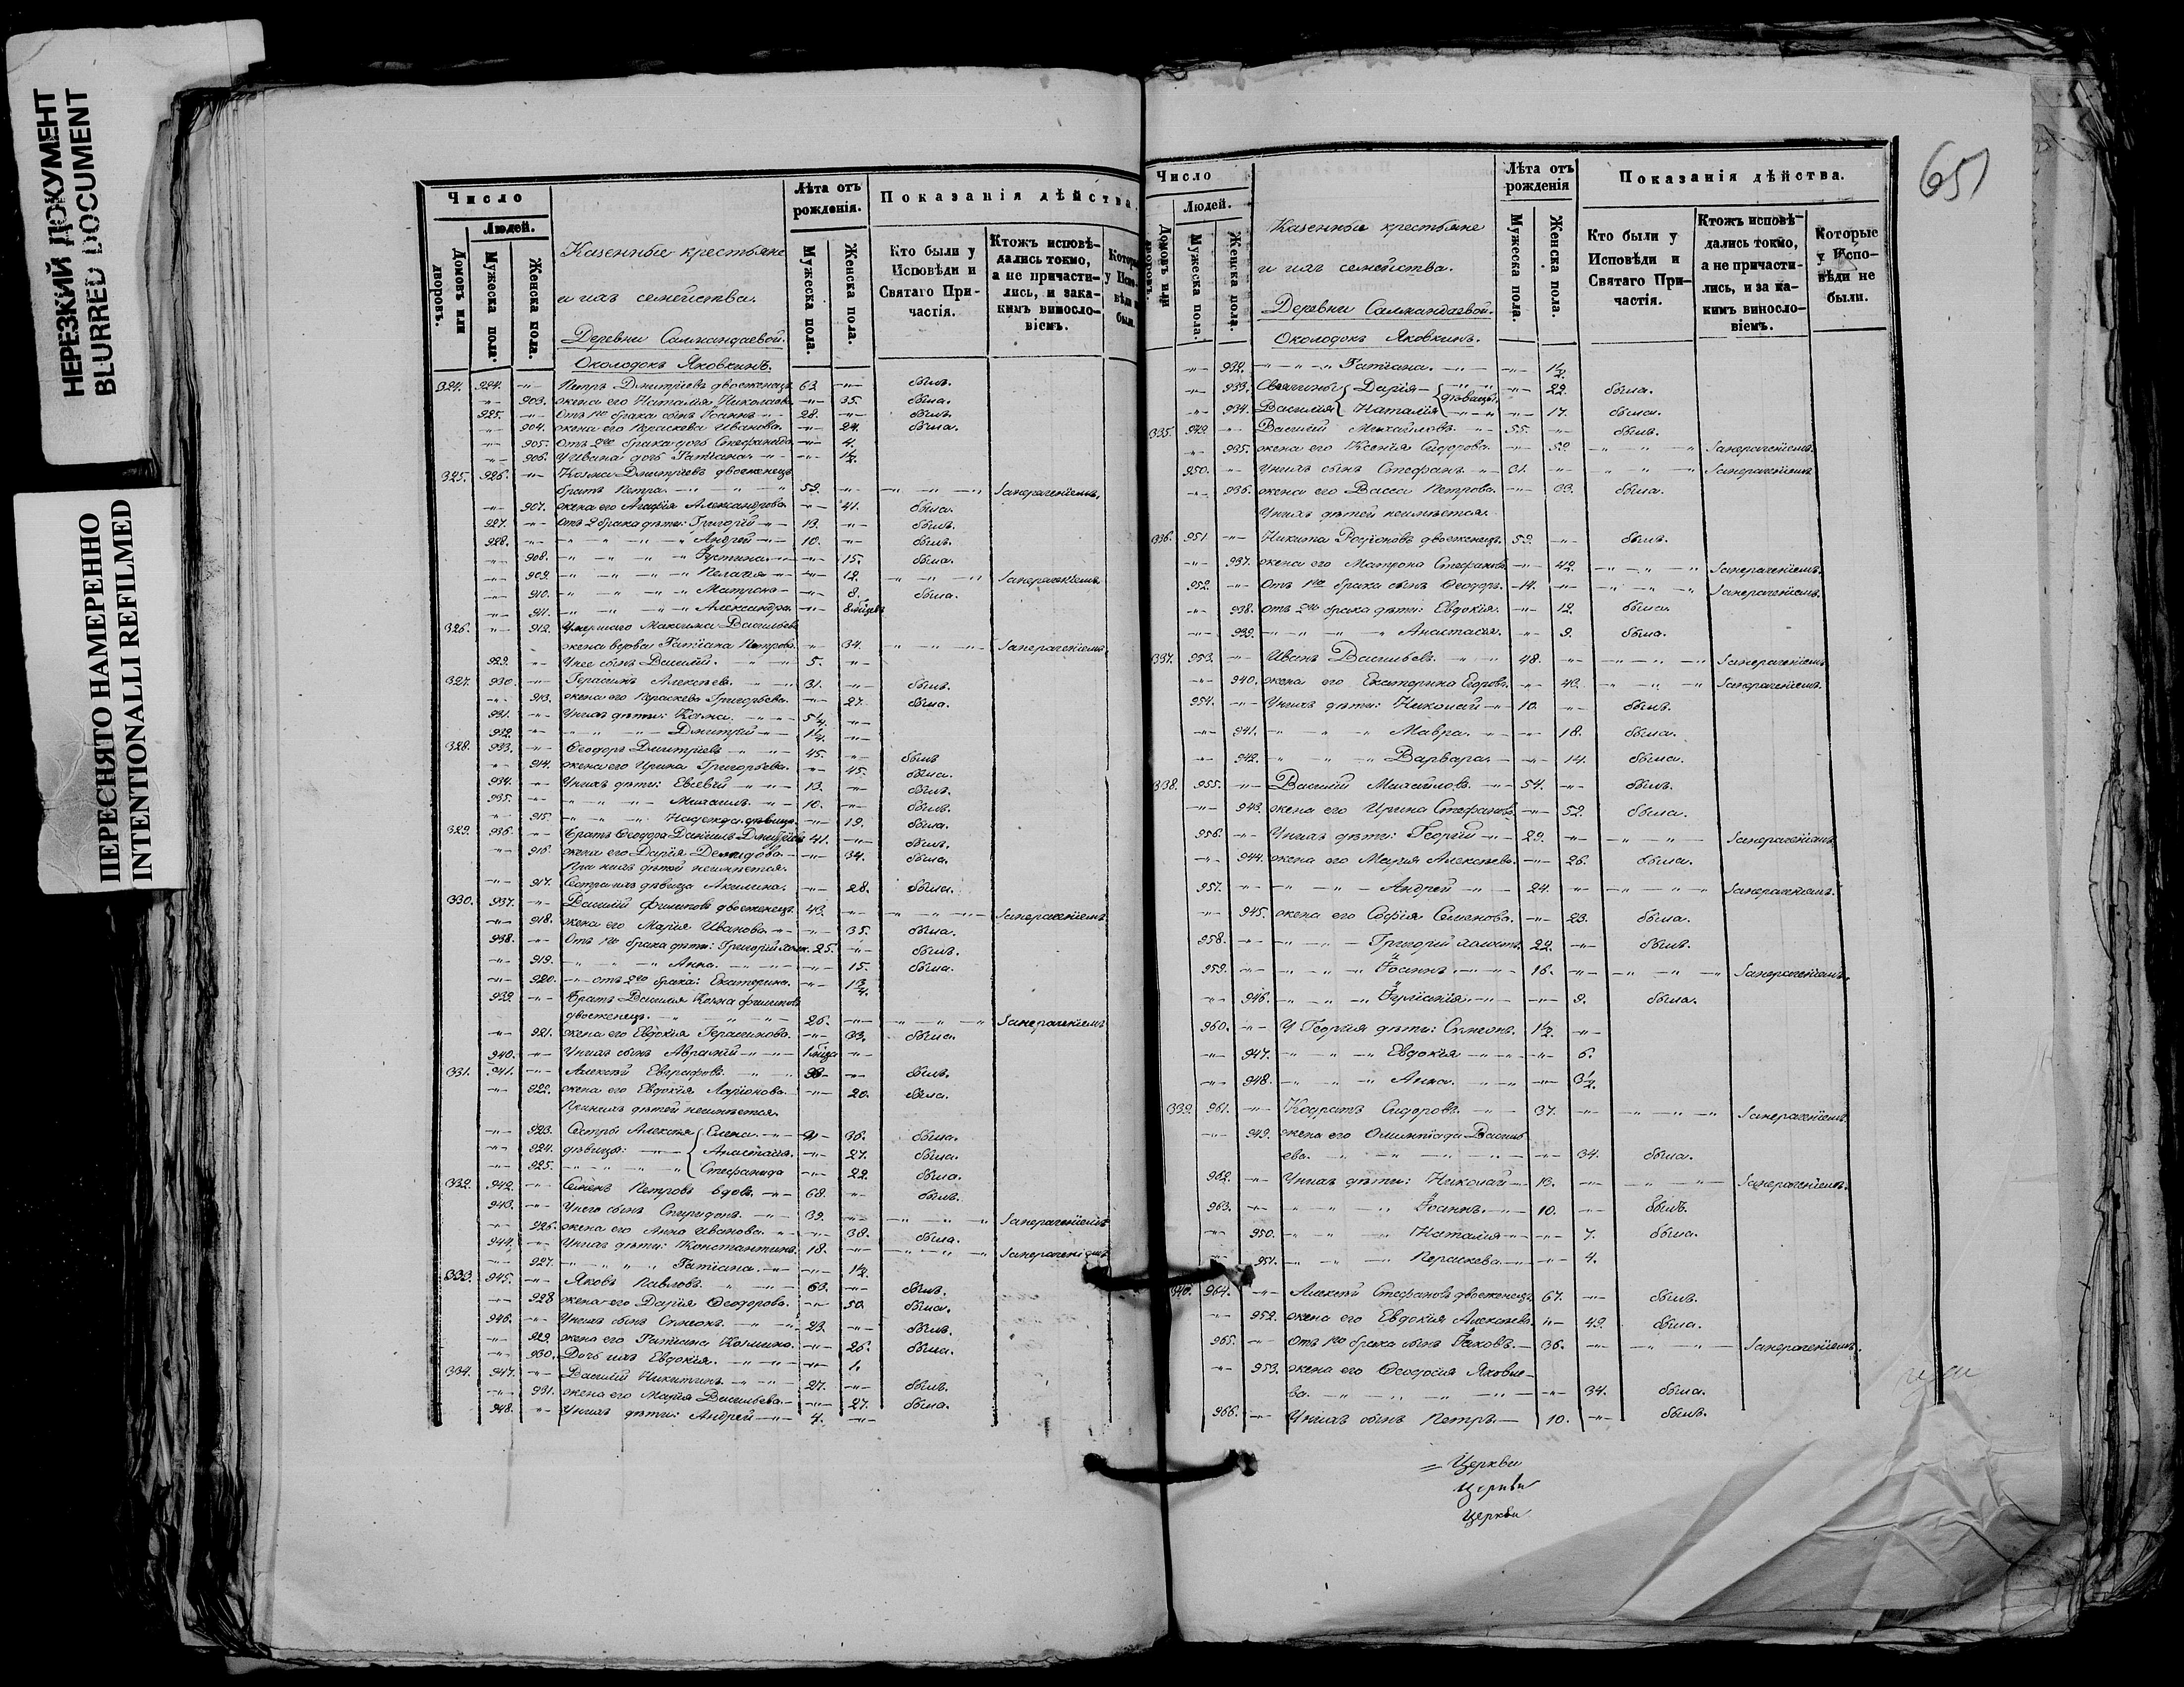 НЕРЕЗКИЙ ДОКУМЕНТ
BLURRED DOCUMENT
ПЕРЕСНЯТО НАМЕРЕННО
INTENTIONALLI REFILMED
Число
Людей.
Домовъ или дворовъ.
Мужеска пола.
Женска пола.
Казенные крестьяне
и ихъ семейства.
Деревни Салкандаевой.
Околодокъ Яковкинъ.
Лѣта отъ рожденія.
Мужеска пола.
Женска пола.
Показанія дѣйства.
Кто были у Исповѣди и Святаго Причастія.
Ктожъ исповѣдались токмо, а не причастились, и за какимъ винословіемъ.
324. 924. Петръ Дмитріевъ двоеженецъ 63. былъ.
903. жена его Наталія Николаева 35. была.
925. Отъ 1го брака сынъ Іоаннъ 28. былъ.
904. жена его Параскева Иванова. 24. была.
905. Отъ 2го брака дочь Стефанида 4.
906. У Ивана дочь Татіана 1½.
325. 926. Козма Дмитріевъ двоеженецъ
братъ Петра. 59.
907. жена его Агафія Александрова 41. была.
927. отъ 2 брака дѣти: Григорій 13. былъ.
928. Андрей 10. былъ.
908. Іустина 15. была.
909. Пелагія 12.
910. Матрона 8. была.
911. Александра
326. 912. Умершаго Максима Васильева
жена вдова Татіана Петрова. 34.
929. У нее сынъ Василій. 5.
327. 930. Герасимъ Алексѣевъ. 31. былъ.
913. жена его Параскева Григорьева. 27. была.
931. У нихъ дѣти: Козма. 5¼.
932. Димитрій 1¼.
328. 933. Ѳеодоръ Дмитріевъ 45. былъ
914. жена его Ирина Григорьева. 45. была.
934. У нихъ дѣти: Евсевій 13. былъ.
935. Михаилъ 10. былъ.
915. Надежда дѣвица. 19. была.
329. 936. Братъ Ѳеодора Даніилъ Дмитріевъ 41. былъ.
916. жена его Дарія Демидова. 34. была.
При нихъ дѣтей неимѣется.
917. Сестра ихъ дѣвица Акилина. 28. была.
330. 937. Василій Филиповъ двоеженецъ 43.
918. жена его Марія Иванова 35. была.
938. Отъ 1го брака дѣти: Григорій холос. 25. былъ.
919. Анна. 15. была.
920. отъ 2го брака: Екатерина. 1¾.
939. Братъ Василія Козма Филиповъ
двоеженецъ. 26.
921. жена его Евдокія Герасимова. 33. была.
940. У нихъ сынъ Аврамій
331. 941. Алексѣй Евграфовъ. былъ.
922. жена его Евдокія Ларіонова. 20. была.
При нихъ дѣтей неимѣется.
923. Сестры Алексѣя Елена. 36. была.
924. дѣвицы: Анастасія. 27. была.
925. Стефанида 22. была.
332. 942. Семенъ Петровъ вдовъ. 68. былъ.
943. У него сынъ Спиридонъ. 39.
926. жена его Анна Иванова. 38. была.
944. У нихъ дѣти: Константинъ. 18.
927. Татіана. 1½.
333. 945. Яковъ Павловъ. 63. былъ.
928 жена его Дарія Ѳеодорова. 50. была.
946. У нихъ сынъ Симеонъ. 23. былъ.
929. жена его Татіана Козмина. 26. была.
930. Дочь ихъ Евдокія. 1.
334. 947. Василій Никитинъ 27. былъ.
931. жена его Марія Васильева. 27. была.
948. У нихъ дѣти: Андрей 4.
651
Число
Людей.
Домовъ или дворовъ.
Мужеска пола.
Женска пола.
Казенные крестьяне
и ихъ семейства.
Деревни Салкандаевой.
Околодокъ Яковкинъ.
Лѣта отъ рожденія
Мужеска пола.
Женска пола.
Показанія дѣйства.
Кто были у Исповѣди и Святаго Причастія.
Ктожъ исповѣдались токмо, а не причастились, и за какимъ винословіемъ.
Которые у Исповѣди не были.
932. Татіана. 1½.
933. Дарія 22. была.
934. Василія Наталія 17. была.
335. 949. Василій Михайловъ 55. былъ.
935. жена его Ксенія Сидорова.
950. У нихъ сынъ Стефанъ 31.
936. жена его Васса Петрова. 33. была.
У нихъ дѣтей неимѣется.
336. 951 Никита Родіоновъ двоеженецъ. 59. былъ.
937. жена его Матрона Стефанова 42.
952. Отъ 1го брака сынъ Ѳеодоръ 14.
938. отъ 2го брака дѣти: Евдокія. 12. была.
939. Анастасія. 9. была.
337. 953. Иванъ Васильевъ 48.
940. жена его Екатерина Егорова. 43.
954. У нихъ дѣти: Николай 10. былъ.
941. Мавра. 18. была.
942. Варвара. 14. была.
338. 955. Василій Михайловъ. 54. былъ.
943. жена его Ирина Стефанова 52. была.
956. У нихъ дѣти: Георгій 29.
944. жена его Марія Алексѣева. 26. была.
957. Андрей 24.
945. жена его Софія Семенова. 23. была.
958. Григорій холостъ. 22. былъ.
959. Іоаннъ 16.
946. 9. была.
960. У Георгія дѣти: Симеонъ. 1½.
947. Евдокія 6.
948. Анна. 3½.
339. 961. Кодратъ Сидоровъ 37.
949. жена его Олимпіада Василь
ева. 34. была.
962. У нихъ дѣти: Николай 13.
963. Іоаннъ. 10. былъ.
950. Наталія 7. была.
951. Параскева 4.
340. 964. Алексѣй Стефановъ двоеженецъ 67. былъ.
952. жена его Евдокія Алексѣева 49. была.
965. Отъ 1го брака сынъ Іаковъ. 36.
953. жена его Ѳеодосія Яковле-
ва. 34. была.
966. У нихъ сынъ Петръ 10. былъ.
Церкви
Церкви
Церкви